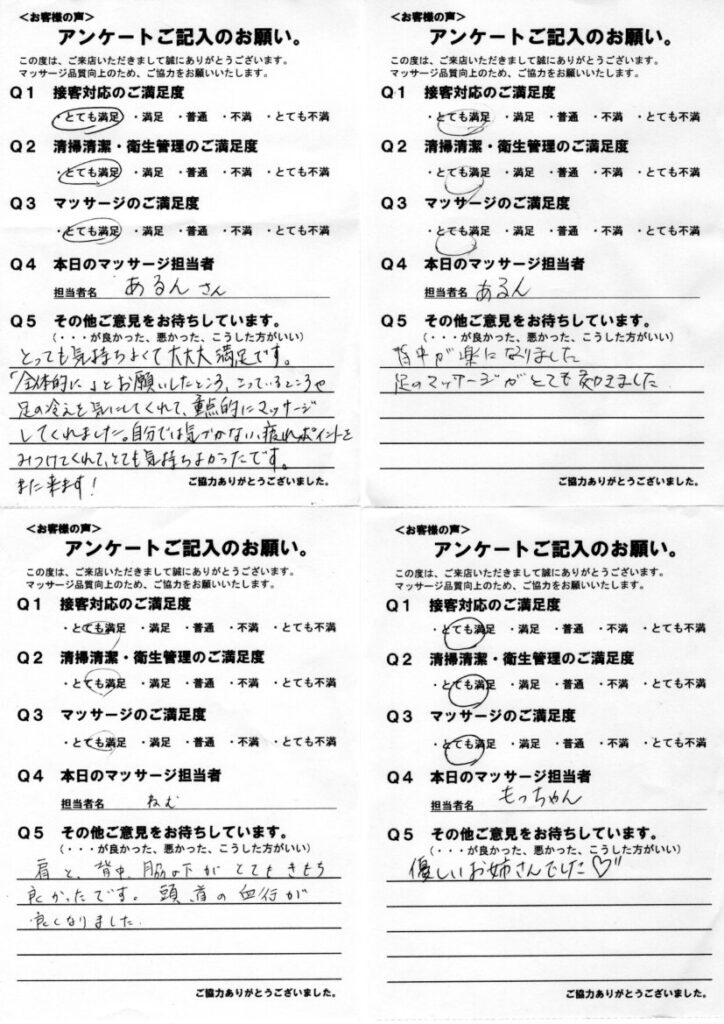 ＜お客様の声＞
アンケートご記入のお願い。
この度は、ご来店いただきまして誠にありがとうございます。
マッサージ品質向上のため、ご協力をお願いいたします。
Ｑ１　接客対応のご満足度
・とても満足　・満足　・普通　・不満　・とても不満
Ｑ２　清掃清潔・衛生管理のご満足度
・とても満足　・満足　・普通　・不満　・とても不満
Ｑ３　マッサージのご満足度
・とても満足　・満足　・普通　・不満　・とても不満
Ｑ４　本日のマッサージ担当者
担当者名　あるん さん
Ｑ５　その他ご意見をお待ちしています。
（・・・が良かった、悪かった、こうした方がいい）
とっても気持ちよくて大大大満足です。
「全体的に」とお願いしたところ、こっているところや
足の冷えを気にしてくれて、重点的にマッサージ
してくれました。自分では気づかない、疲れポイントを
みつけてくれて、とても気持ちよかったです。
また来ます！
ご協力ありがとうございました。
＜お客様の声＞
アンケートご記入のお願い。
この度は、ご来店いただきまして誠にありがとうございます。
マッサージ品質向上のため、ご協力をお願いいたします。
Ｑ１　接客対応のご満足度
・とても満足　・満足　・普通　・不満　・とても不満
Ｑ２　清掃清潔・衛生管理のご満足度
・とても満足　・満足　・普通　・不満　・とても不満
Ｑ３　マッサージのご満足度
・とても満足　・満足　・普通　・不満　・とても不満
Ｑ４　本日のマッサージ担当者
担当者名　あるん
Ｑ５　その他ご意見をお待ちしています。
（・・・が良かった、悪かった、こうした方がいい）
背中が楽になりました
足のマッサージがとても効きました
ご協力ありがとうございました。
＜お客様の声＞
アンケートご記入のお願い。
この度は、ご来店いただきまして誠にありがとうございます。
マッサージ品質向上のため、ご協力をお願いいたします。
Ｑ１　接客対応のご満足度
・とても満足　・満足　・普通　・不満　・とても不満
Ｑ２　清掃清潔・衛生管理のご満足度
・とても満足　・満足　・普通　・不満　・とても不満
Ｑ３　マッサージのご満足度
・とても満足　・満足　・普通　・不満　・とても不満
Ｑ４　本日のマッサージ担当者
担当者名　ねむ
Ｑ５　その他ご意見をお待ちしています。
（・・・が良かった、悪かった、こうした方がいい）
肩と、背中、脇の下がとてもきもち
良かったです。頭、首の血行が
良くなりました。
ご協力ありがとうございました。
＜お客様の声＞
アンケートご記入のお願い。
この度は、ご来店いただきまして誠にありがとうございます。
マッサージ品質向上のため、ご協力をお願いいたします。
Ｑ１　接客対応のご満足度
・とても満足　・満足　・普通　・不満　・とても不満
Ｑ２　清掃清潔・衛生管理のご満足度
・とても満足　・満足　・普通　・不満　・とても不満
Ｑ３　マッサージのご満足度
・とても満足　・満足　・普通　・不満　・とても不満
Ｑ４　本日のマッサージ担当者
担当者名　もっちゃん
Ｑ５　その他ご意見をお待ちしています。
（・・・が良かった、悪かった、こうした方がいい）
優しいお姉さんでした♡
ご協力ありがとうございました。